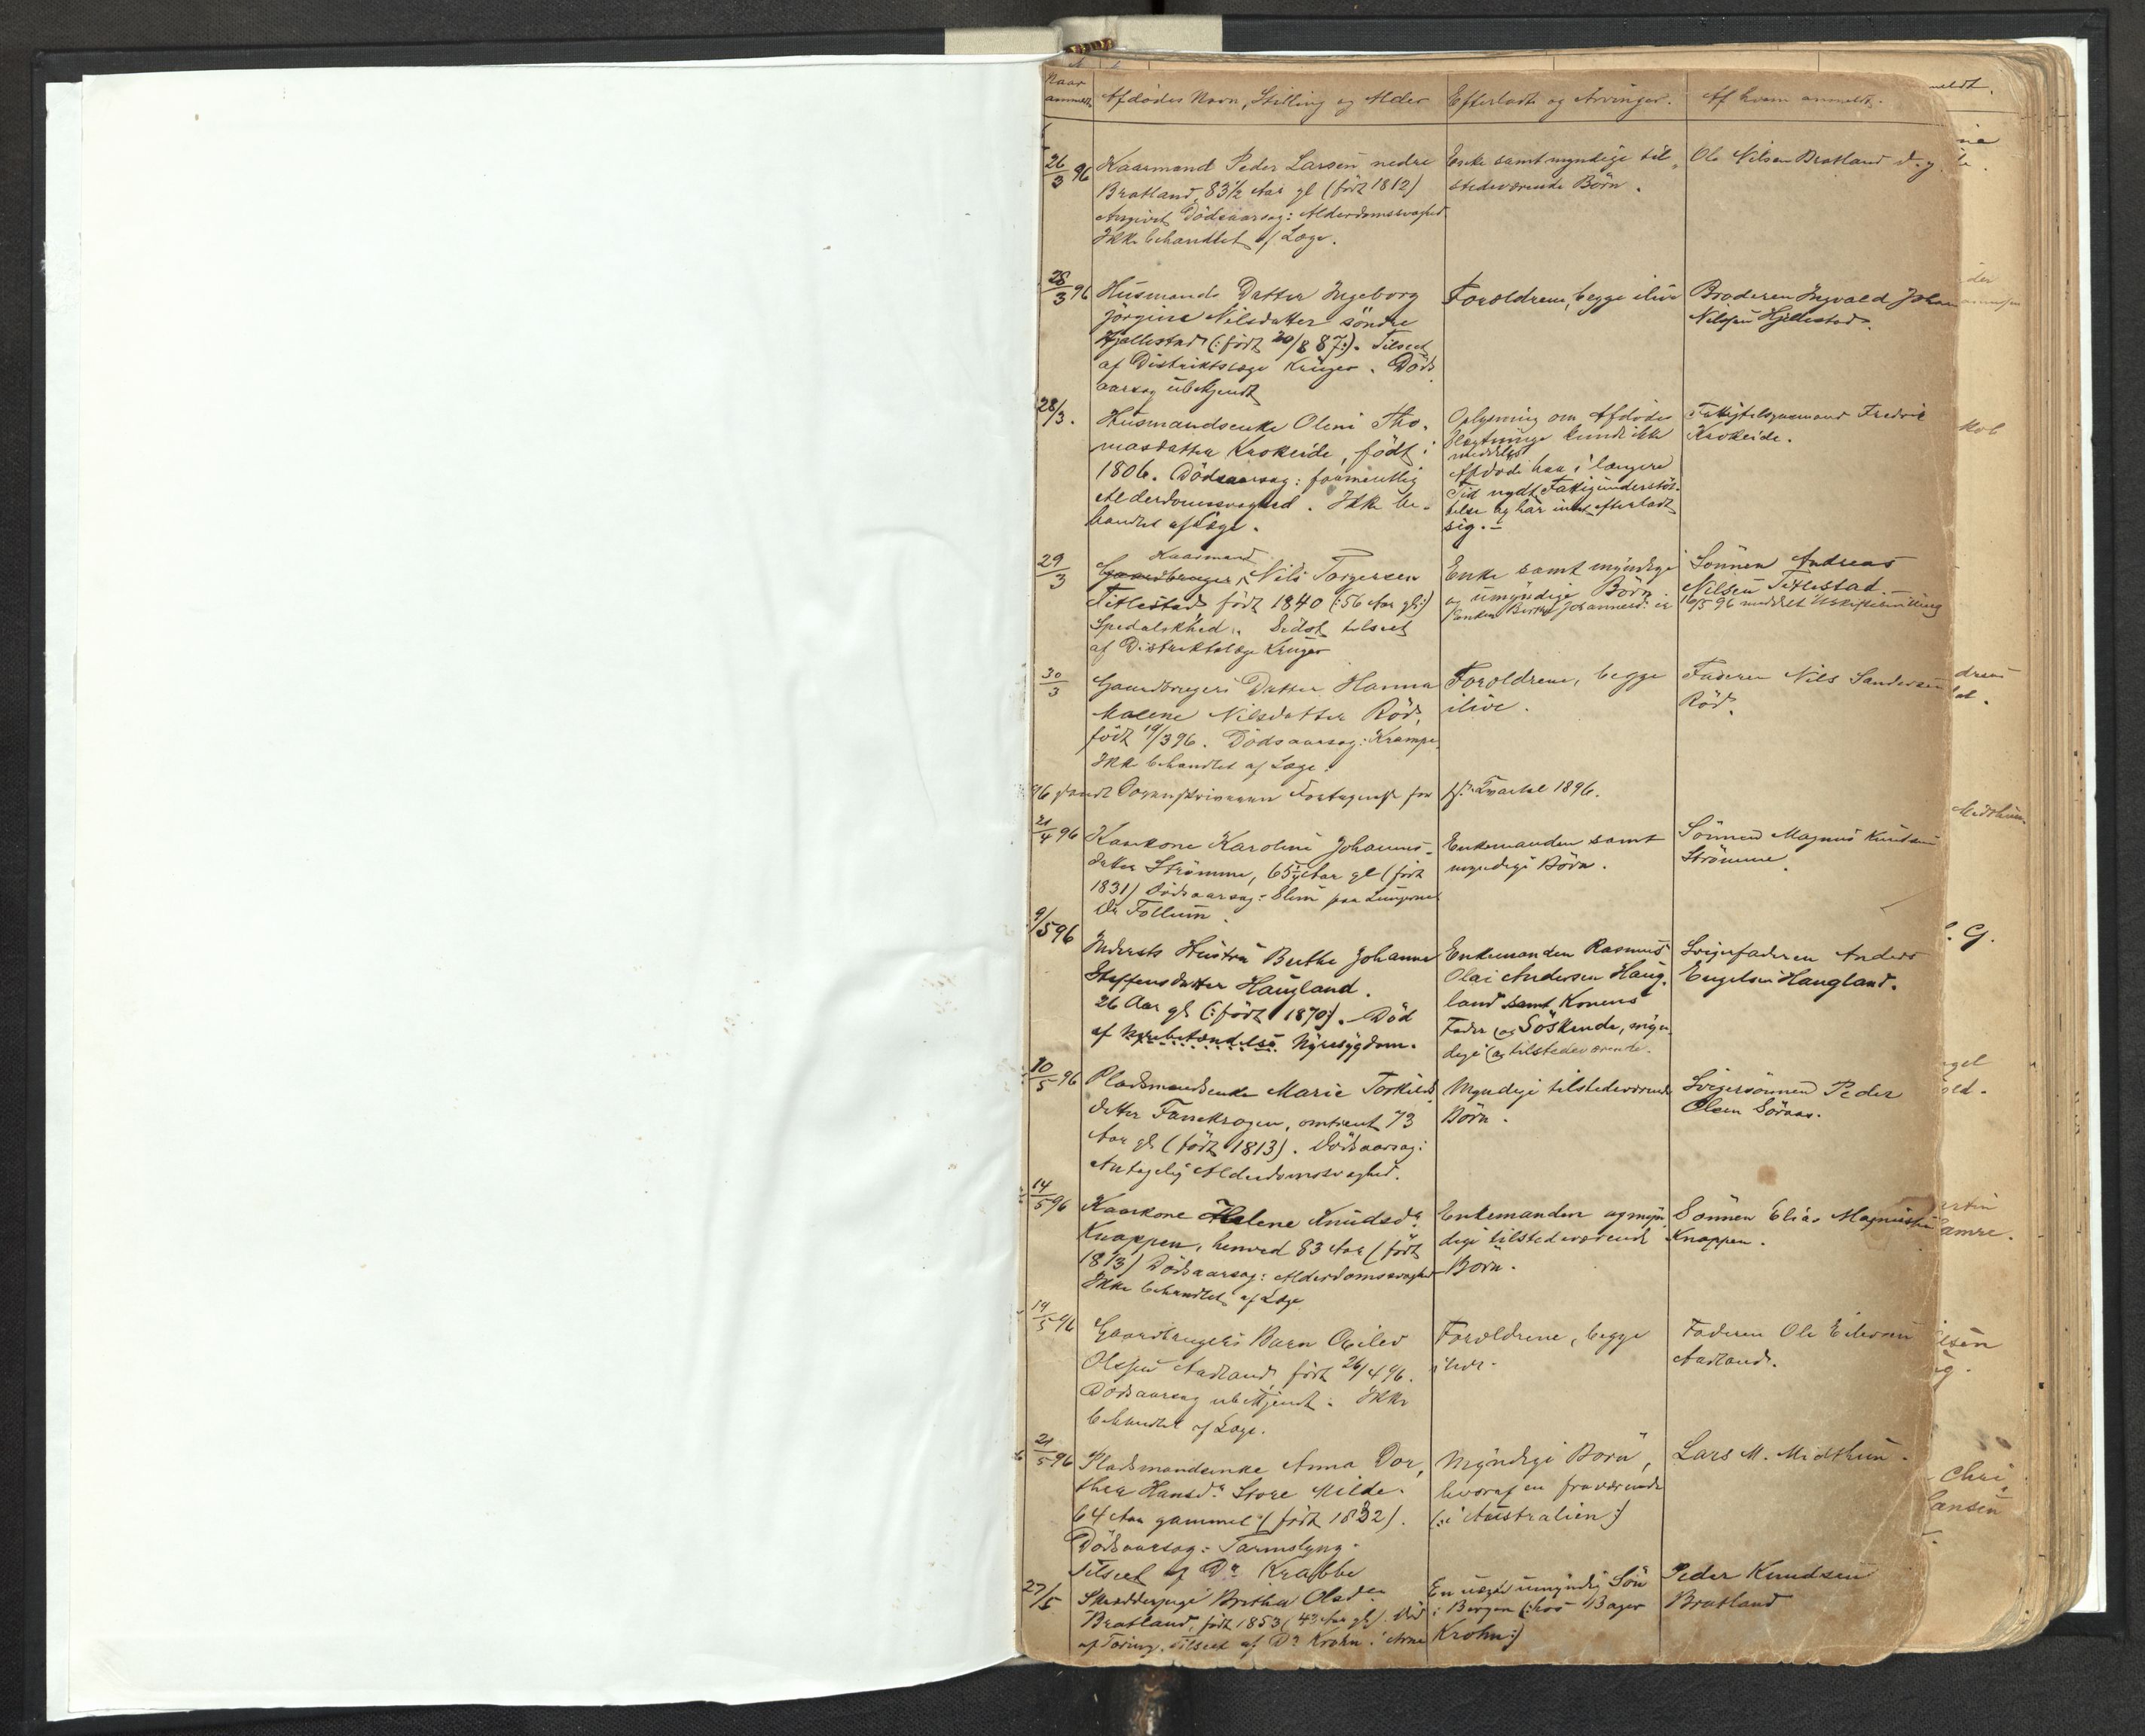 Naar anmeldt Afdødes Navn, Stilling og Alder Efterladte og Arvinger. Af hvem anmeldt.
26/3 96 Kaarmand Peder Larsen nedre
Bratland, 83½ Aar gl (født 1812)
Angivet Dödsaarsag: Alderdomssvaghed
Ikke behandlet af Læge.
Enke samt myndige til-
stedeværende Börn.
Ole Nilsen Bratland
28/3 96 Husmands Datter Ingeborg
Jörgine Nilsdatter söndre
Hjellestad (: født 20/8 87:). Tilseet
af Distriktslæge Krüger. Döds
aarsag ubekjendt
Forældrene, begge ilive
Broderen Ingvald Johan
Nilsen Hjellestad.
28/3. Husmandsenke Oline Tho-
masdatter Krokeide, född i
1806. Dödsaarsag: formentlig
Alderdomssvaghed. Ikke be-
handlet af Læge.
Oplysning om Afdødes
Slægtninge kunde ikke
meddeles
Afdøde har i længere
Tid nydt Fattigunderstöt-
telse og har intet efterladt
sig.-
Fattigtilsynsmand Fredrik
Krokeide.
29/3 Kaarmand
Gaardbruger, Nils Torgersen
Titlestad, födt 1840 (:56 Aar gl:)
Spedalskhed. Sidst tilseet
af Distriktslæge Krüger
Enke samt myndige
og umyndige Börn.
Sönnen Andreas
Nilsen Titlestad.-
30/3 Gaardbrugers Datter Hanna
Malene Nilsdatter Röd,
födt 19/3 96. Dödsaarsag: Krampe.
Ikke behandlet af Læge.
Forældrene, begge
ilive.
Faderen Nils Sandersen
Röd.
Sorenskriveren Fortegnelse for 1ste Kvartal 1896.
21/4 96 Kaarkone Karoline Johannes-
datter Strömme, 65 Aar gl (födt
1831) Dödsaarsag: Slim paa Lungerne
Dr Follum.
Enkemanden samt
myndige Börn.
Sönnen Magnus Knutsen
Strömme
9/5 96 Indersts Hustru Berthe Johanne
Steffensdatter Haugland.
26 Aar gl (: födt 1870:). Död
af Nyrebetændelse Nyresygdom.
Enkemanden Rasmus
Olai Andersen Haug-
land samt Konens
Fader og Söskende, myn-
dige og tilstedeværende.
Svigerfaderen Anders
Engelsen Haugland.
10/5 96 Pladsmandsenke Marie Torkilds
datter Fanekrogen, omtrent 73
Aar gl (födt 1813). Dödsaarsag:
Antagelig Alderdomssvaghed.
Myndige tilstedeværende
Börn.
Svigersönnen Peder
Olsen Söraas.
14/5 96 Kaarkone Helene Knudsdr
Knappen, henved 83 Aar (födt
1813) Dödsaarsag: Alderdomssvaghed
Ikke behandlet af Læge
Enkemanden og myn-
dige tilstedeværende
Börn.
Sönnen Elias Magnussen
Knappen.
19/5 96 Gaardbrugers Barn Eilev
Olsen Aadland, födt 26/4 96.
Dödsaarsag ubekjendt. Ikke
behandlet af Læge.
Forældrene, begge
ilive.
Faderen Ole Eilevsen
Aadland.
21/5 96 Pladsmandsenke Anna Dor-
thea Hansdr Store Milde.
64 Aar gammel (födt 1832).
Dödsaarsag: Tarmslyng.
Tilseet af Dr Krabbe
Myndige Börn,
hvoraf en fraværende
(: i Australien:)
Lars M. Midthun.
27/5 Skrædderpige Britha Olsdr
Bratland, födt 1853 (43 Aar gl). Död
af Tæring. Tilseet af Dr Krohn.
En uægte umyndig Sön
i Bergen (: hos Bager
Arne Krohn:)
Peder Knudsen
Bratland